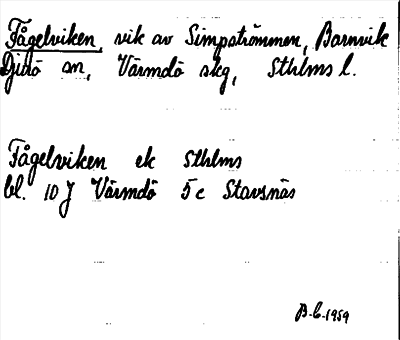 Fågelviken, vik av Simpströmmen, Barnvik
Djurö sn, Värmdö skg, Sthlms l.
Fågelviken ek Sthlms
bl. 10 J Värmdö 5 c Stavsnäs
B.C. 1959